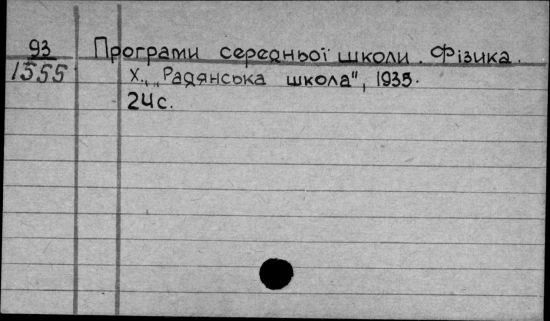 93
1555
Програми середньої школи. Фізика.
Х., „Радянська школа", 1935.
24 с.